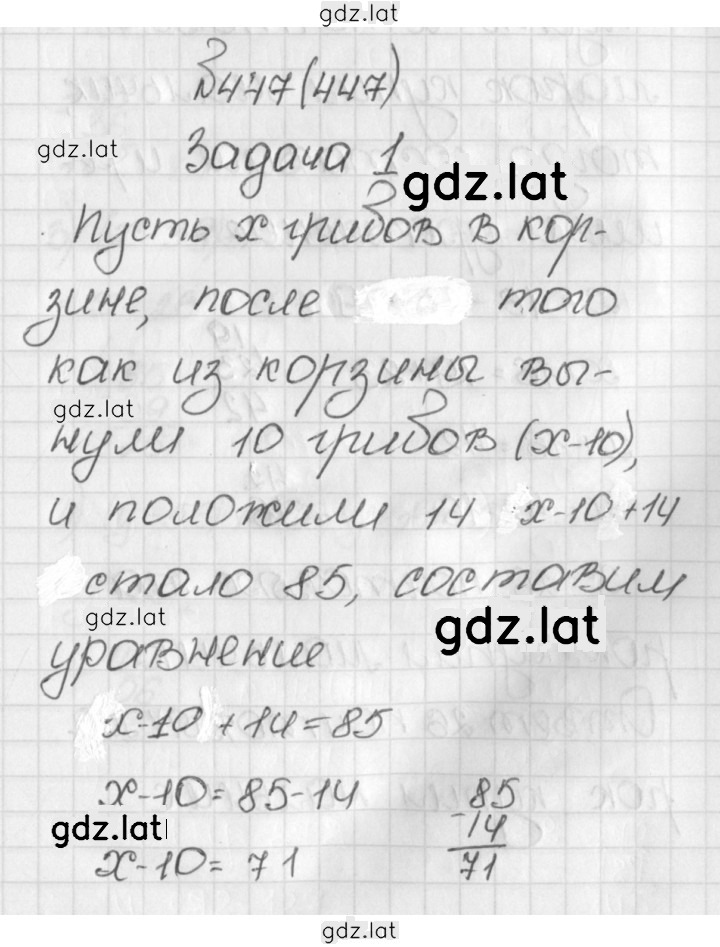 gdz.lat
№447(447)
gdz.lat
Задача 1
gdz.lat
Пусть x грибов в кор-
зине, после того
как из корзины вы-
gdz.lat
нули 10 грибов (x-10),
и положили 14 x-10+14
стало 85, составим
gdz.lat
gdz.lat
уравнение
x-10+14=85
x-10=85-14
85
gdz.lat
-14
x-10=71
71
gdz.lat